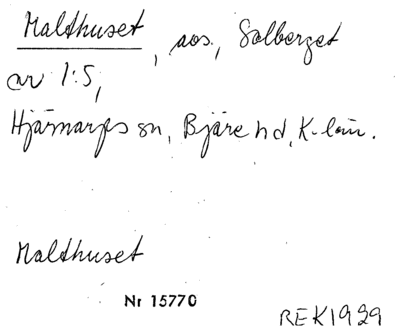 Malthuset, aos., Solberget
av 1:5,
Hjärnarps sn, Bjäre hd, K-län.
Malthuset
Nr 15770
REK1929